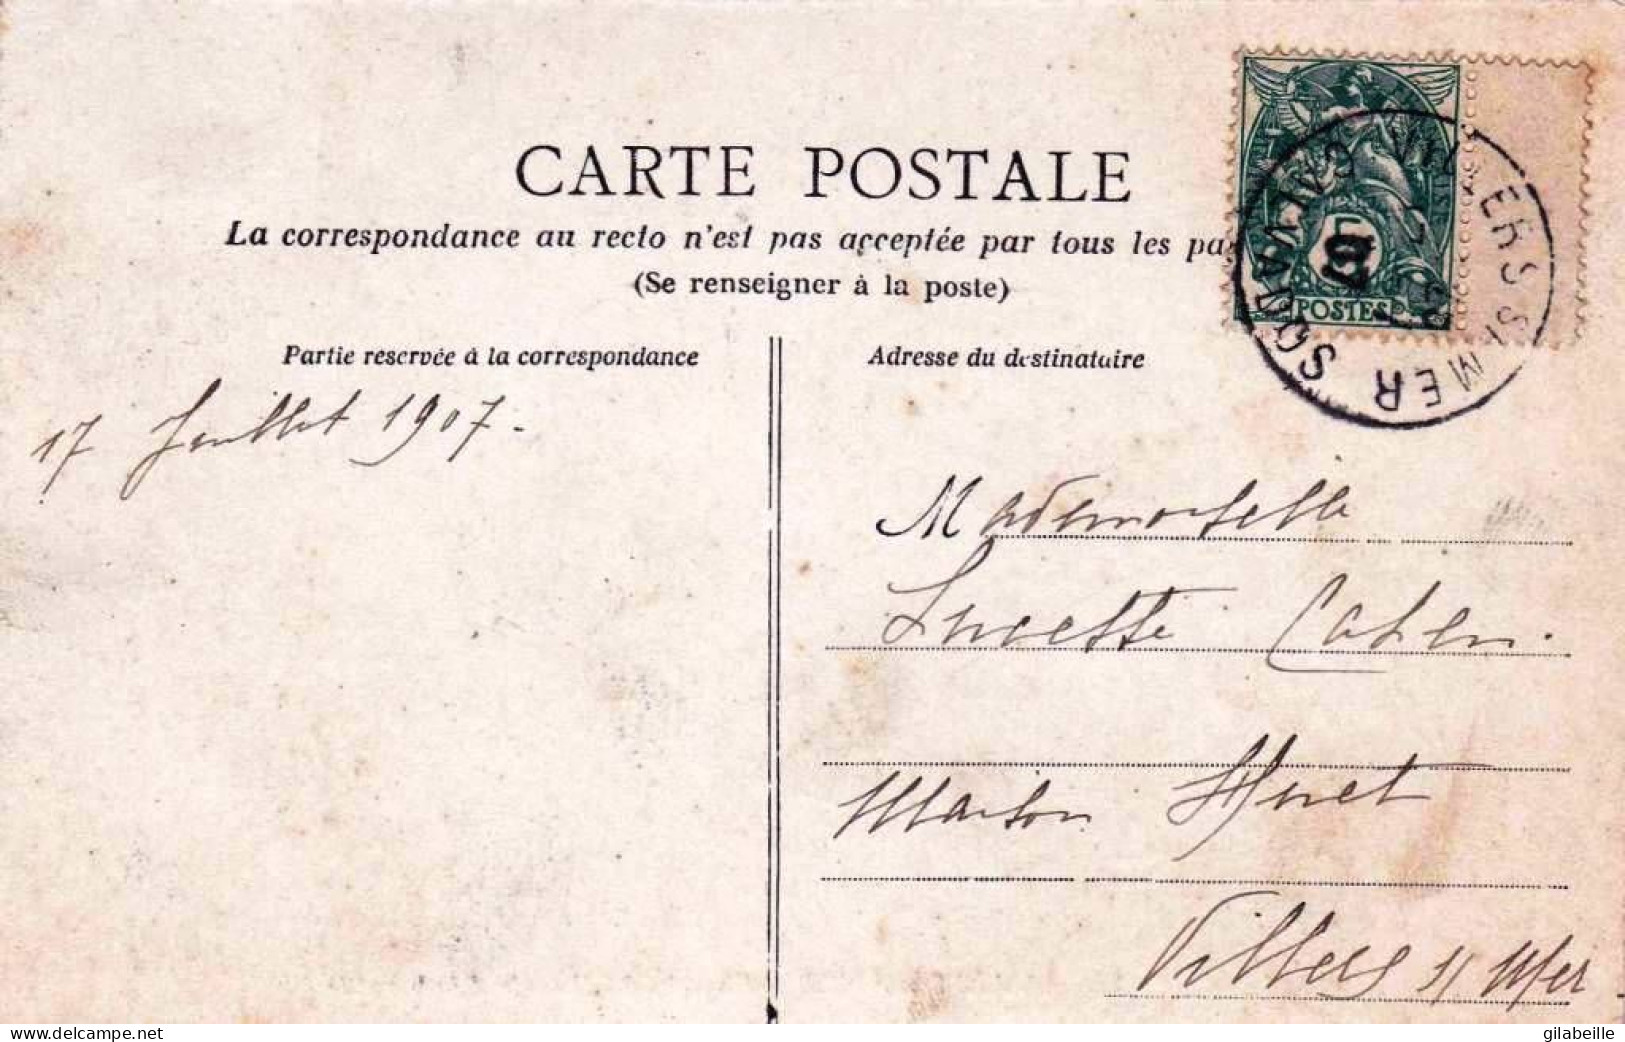 CARTE POSTALE
La correspondance au recto n'est pas acceptée par tous les pa
(Se renseigner à la poste)
Partie reservée à la correspondance
Adresse du destinataire
POSTES
VILLERS S MER CALVADOS
17 Juillet 1907.
Mademoiselle
Lucette Cahen.
Maison Huet
Villers s/ Mer
gilabeille